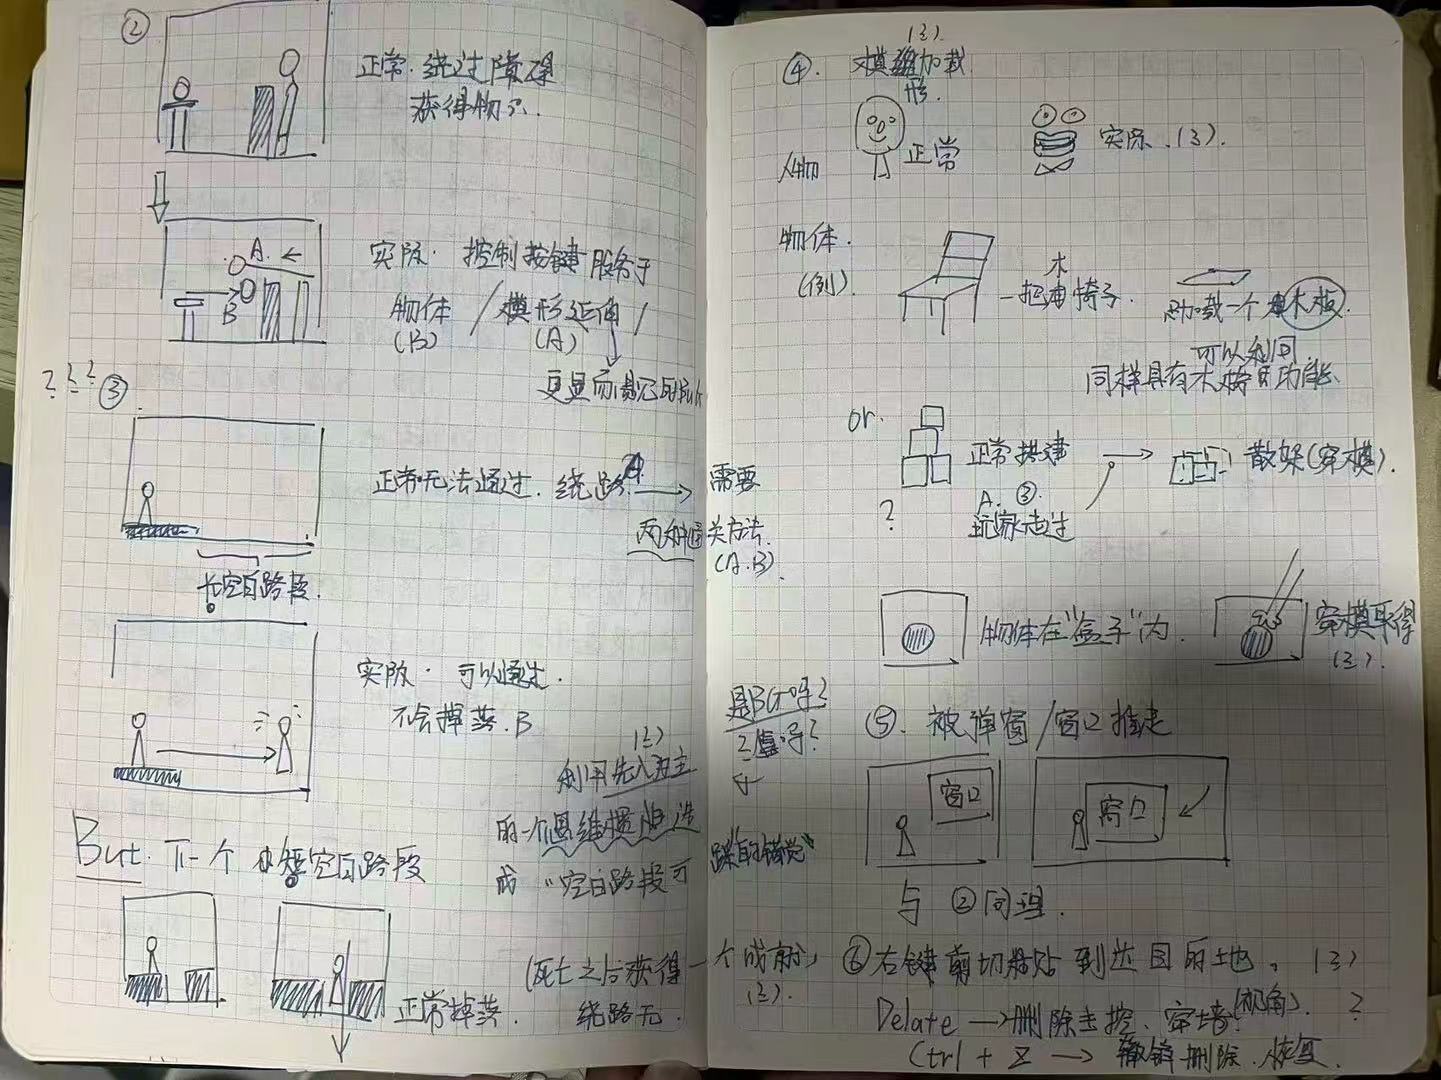 ②
正常.绕过障碍
获得物品.
A.
B
实际.控制按键服务于
物体/模形延伸/
(B) (A)
更显而易见的Bug
???
③
正常无法通过.绕路.A → 需要
两种通关方法.
(A.B).
长空白路段.
实际.可以通过.
不会掉落.B
利用先入为主
的一个思维惯性造
成"空白路段可
踩"的错觉"
But.下一个小短空白路段
正常掉落.
(死亡之后获得一个成就)
绕路无.
④.模组加载
形.
人物
正常
实际.
物体.
(例).
木
一把椅子.
→加载一个木板.
可以利同
同样具有木椅的功能
or.
正常搭建
A. ③.
玩家走过
?
→ 散架(穿模).
物体在"盒子"内.
穿模取得
是BUG吗?
?值吗?
⑤.被弹窗/窗口推走
窗口
窗口
与②同理.
⑥右键剪切粘贴到达目的地.
Delate→删除主控.穿墙(视角).?
Ctrl+Z→撤销删除.恢复.